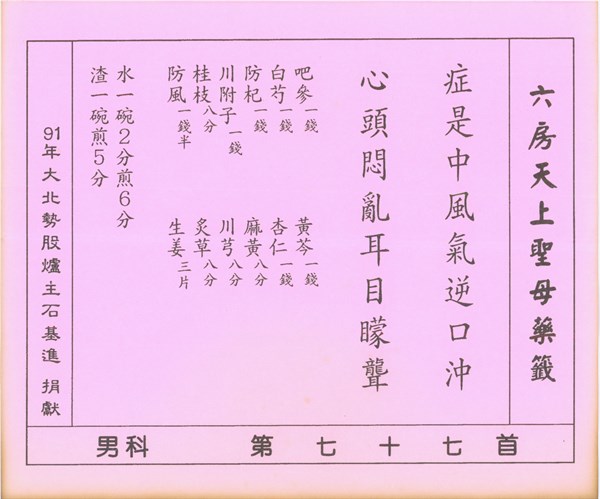 六房天上聖母藥籤
症是中風氣逆口沖
心頭悶亂耳目矇聾
吧參一錢
白芍一錢
防杞一錢
川附子一錢
桂枝八分
防風一錢半
黃芩一錢
杏仁一錢
麻黃八分
川芎八分
炙草八分
生姜三片
水一碗2分煎6分
渣一碗煎5分
91年大北勢股爐主石基進 捐獻
首七十七第
男科